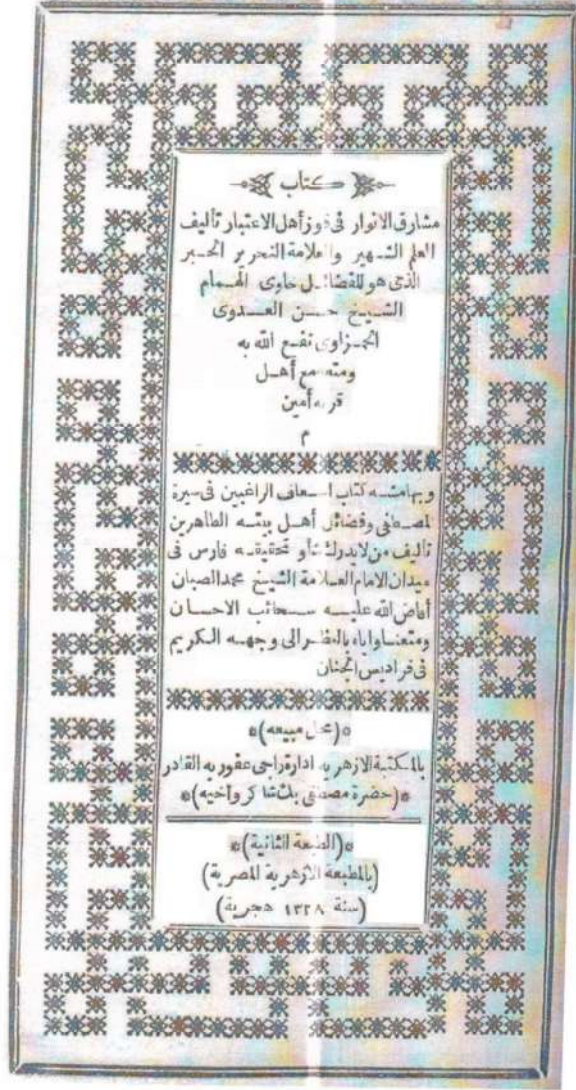 كتاب
مشارق الانوار في فوز أهل الاعتبار تأليف
العلم الشهير والعلامة التحرير الحبر
الذى هو للفضائل حاوى الهمام
الشيخ حسن العدوى
الحمزاوى نفع الله به
ومتع مع أهل
قربه أمين
م
وبهامشه كتاب اسعاف الراغبين فى سيرة
المصطفى وفضائل أهل بيته الطاهرين
تأليف من لا يدرك شأو تحقيقه فارس فى
ميدان الامام العلامة الشيخ محمد الصبان
أفاض الله عليه سحائب الاحسان
ومتعنا واياه بالنظر الى وجهه الكريم
فى فراديس الجنان
*(محل مبيعه)*
بالمكتبة الازهرية ادارة راجى عفو ربه القادر
*(حضرة مصطفى بك شاكر وأخيه)*
*(الطبعة الثانية)*
(بالمطبعة الازهرية المصرية)
(سنة ١٣٢٨ هجرية)